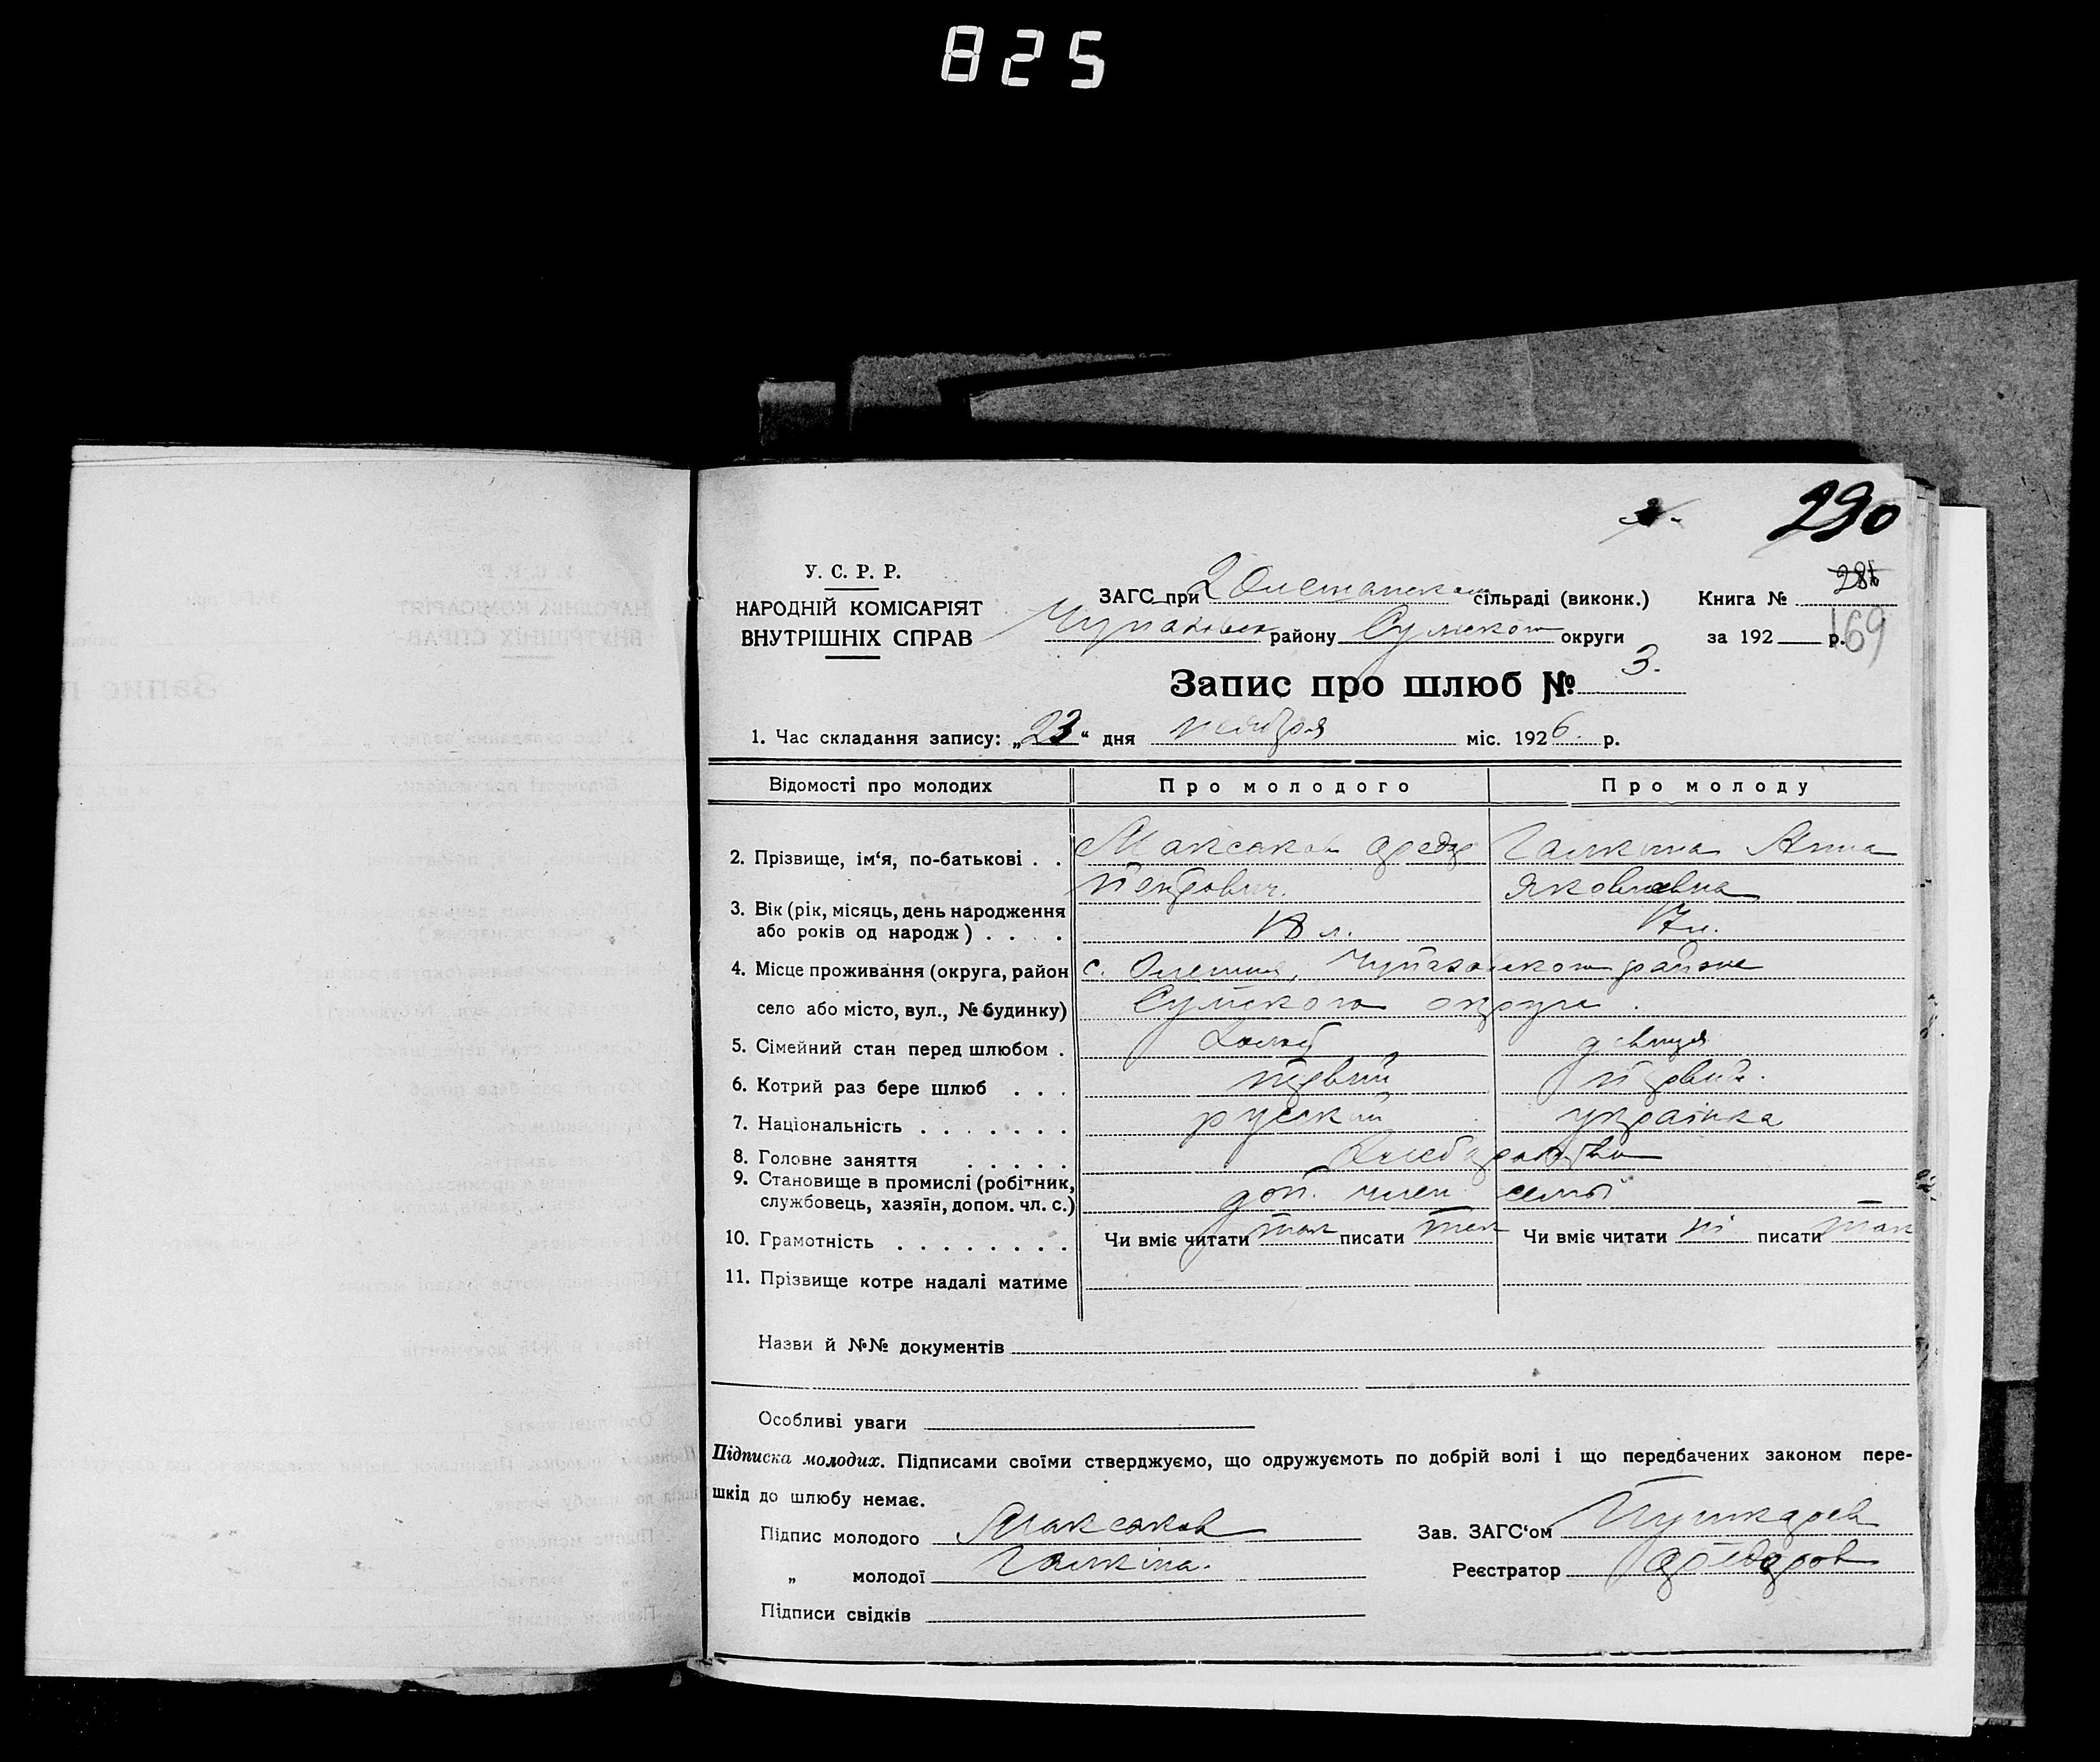 825
290
У. С. Р. Р.
НАРОДНІЙ КОМІСАРІЯТ
ВНУТРІШНІХ СПРАВ
ЗАГС при 2 сільраді (виконк.)
району Сумского округи
Книга №
169
за 192 р.
Запис про шлюб № 3.
1. Час складання запису: „23“ дня ноября міс. 1926. р.
Відомості про молодих Про молодого Про молоду
2. Прізвище, ім‘я, по-батькові . . Максаков Федор Галкина Анна
Петрович. Яковлевна
3. Вік (рік, місяць, день народження
або років од народж) . . . . 18 л. 17 л.
4. Місце проживання (округа, район с. Олешня, Чупаховского района
село або місто, вул., № будинку) Сумского округа.
5. Сімейний стан перед шлюбом . Холост девиця
6. Котрий раз бере шлюб . . . первый первый.
7. Національність . . . . . . . руский украінка
8. Головне заняття . . . . . Хлебаробство
9. Становище в промислі (робітник,
службовець, хазяїн, допом. чл. с.) доп. член семьі
10. Грамотність . . . . . . . . Чи вміє читати так писати так Чи вміє читати ні писати так
11. Прізвище котре надалі матиме
Назви й №№ документів
Особливі уваги
Підписка молодих. Підписами своїми стверджуємо, що одружуємоть по добрій волі і що передбачених законом пере-
шкід до шлюбу немає.
Підпис молодого Максаков Зав. ЗАГС‘ом Пушкарев
„ молодої Галкіна. Реєстратор Федоров
Підписи свідків